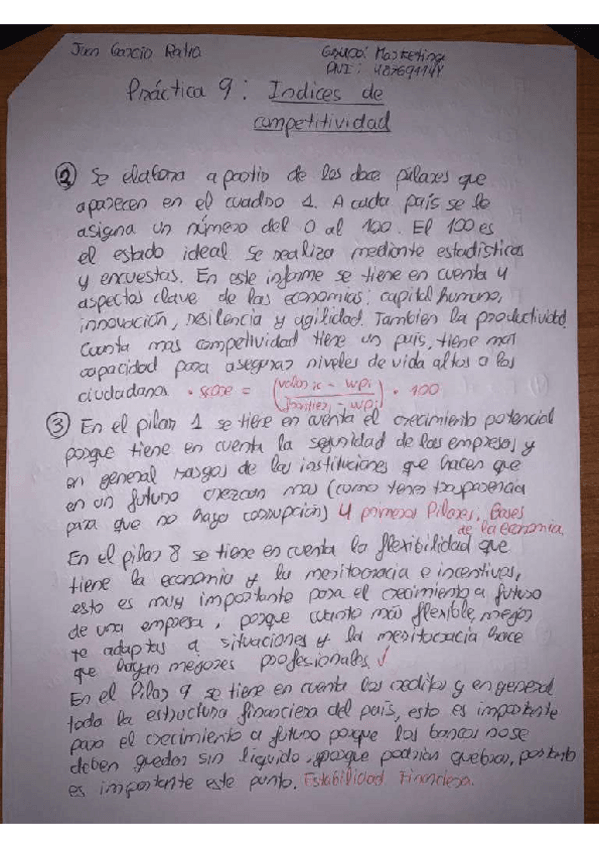 Juan García Grupo: Marketing
DNI:
Práctica 9: Indices de
competitividad
② Se elabora a partir de los doce pilares que
aparecen en el cuadro 1. A cada país se le
asigna un número del 0 al 100. El 100 es
el estado ideal se realiza mediante estadísticas
y encuestas. En este informe se tiene en cuenta 4
aspectos clave de las economías: capital humano,
innovación, resilencia y agilidad. Tambien la productividad.
Cuanta mas competividad tiene un país, tiene mas
capacidad para asegurar niveles de vida altos a los
ciudadanos. • score = (valor ic - wpi / frontier - wpi) • 100
③ En el pilar 1 se tiene en cuenta el crecimiento potencial
porque tiene en cuenta la seguridad de las empresas y
en general rasgos de las instituciones que hacen que
en un futuro crezcan mas (como tener trasparencia
para que no haya corrupción) 4 primeros Pilares, Bases
de la economía.
En el pilar 8 se tiene en cuenta la flexibilidad que
tiene la economía y la meritocracia e incentivos,
esto es muy importante para el crecimiento a futuro
de una empresa, porque cuanto más flexible, mejor
te adaptas a situaciones y la meritocracia hace
que hayan mejores profesionales ✓
En el Pilar 9 se tiene en cuenta los creditos y en general
toda la estructura financiera del país, esto es importante
para el crecimiento a futuro porque los bancos no se
deben quedar sin liquido, porque podrían quebrar, por tanto
es importante este punto. Estabilidad Financiera.